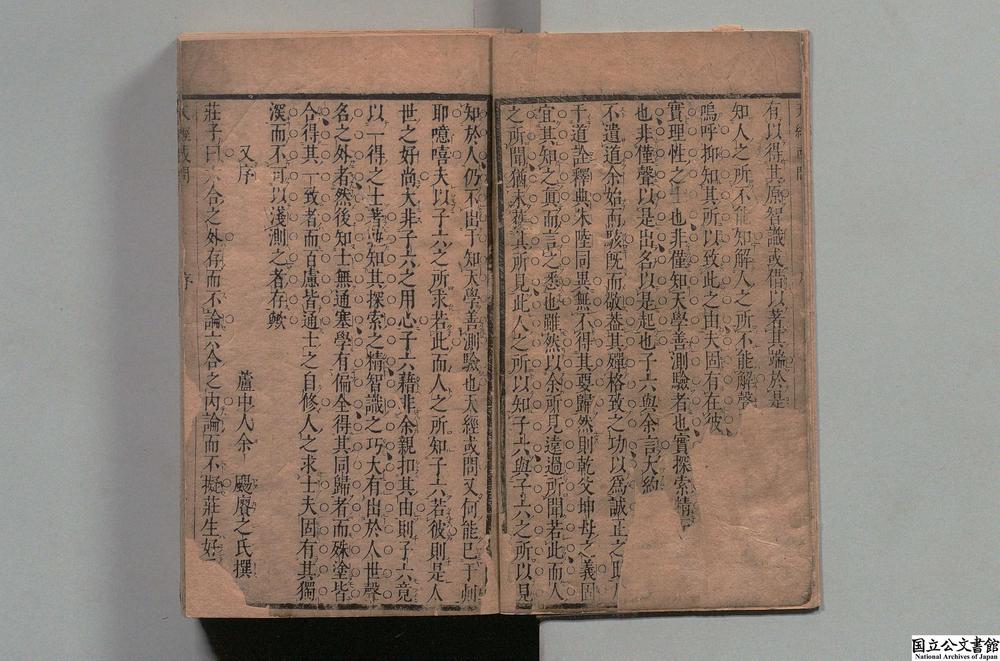 有以得其原智識或借以著其端於是
知人之所不能知解人之所不能解聲
嗚呼抑知其所以致此之由夫固有在彼
實理性之士也非僅知天學善測驗者也實探索精
也非僅聲以是出名以是起也子六與余言大約
不遺道余始而駭既而敬葢其殫格致之功以為誠正之
于道詮釋與朱陸同異無不得其要歸然則乾父坤母之義固
宜其知之真而言之悉也雖然以余所見遠過所聞若此而人
之所聞猶未獲其所見此人之所以知子六與子六之所以見
知於人仍不出于知天學善測驗也天經或問又何能已于刻
耶噫嘻夫以子六之所求若此而人之所知子六若彼則是人
世之好尚大非子六之用心子六藉非余親扣其由則子六竟
以一得之士著誰知其探索之精智識之巧大有出於人世聲
名之外者然後知士無通塞學有偏全得其同歸者而殊塗皆
合得其一致者而百慮皆通士之自修人之求士夫固有其獨
深而不可以淺測之者存歟
蘆中人余 颺賡之氏撰
又序
莊子曰六合之外存而不論六合之內論而不擬莊生好
天經或問 序
国立公文書館
National Archives of Japan